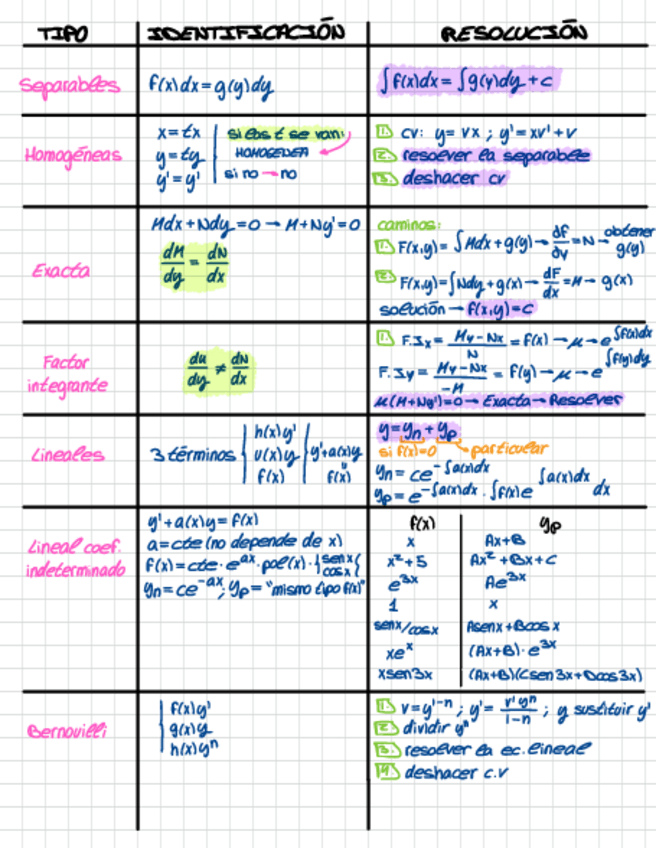 TIPO
IDENTIFICACIÓN
RESOLUCIÓN
Separables
f(x)dx=g(y)dy
∫f(x)dx=∫g(y)dy+c
Homogéneas
x=tx
y=ty
y'=y'
si las t se van:
HOMOGENEA
si no → no
1. cv: y=vx ; y'=xv'+v
2. resolver la separable
3. deshacer cv
Exacta
Mdx+Ndy=0 → M+Ny'=0
dM/dy = dN/dx
caminos:
1. F(x,y)=∫Mdx+g(y) → df/dy=N → obtener g(y)
2. F(x,y)=∫Ndy+g(x) → dF/dx=M → g(x)
solución → f(x,y)=c
Factor
integrante
du/dy ≠ dN/dx
1. F.Ix = My-Nx/N = f(x) → μ → e^∫f(x)dx
F.Iy = My-Nx/-M = f(y) → μ → e^∫f(y)dy
μ(M+Ny')=0 → Exacta → Resolver
Lineales
3 términos
h(x)y'
u(x)y
f(x)
y'+a(x)y
f(x)
y=yn+yp
si f(x)=0
particular
yn=ce^-∫a(x)dx
yp=e^-∫a(x)dx · ∫f(x)e^∫a(x)dx dx
Lineal coef.
indeterminado
y'+a(x)y=f(x)
a=cte (no depende de x)
f(x)=cte·e^ax·pol(x)·{senx cosx{
yn=ce^-ax; yp="mismo tipo f(x)"
f(x) yp
x Ax+B
x²+5 Ax²+Bx+C
e^3x Ae^3x
1 x
senx/cosx Asenx+Bcosx
xe^x (Ax+B)·e^3x
xsen3x (Ax+B)(Csen3x+Dcos3x)
Bernouilli
f(x)y'
g(x)y
h(x)y^n
1. v=y^1-n ; y'=v'y^n/1-n ; y sustituir y'
2. dividir y^n
3. resolver la ec. lineal
4. deshacer c.v